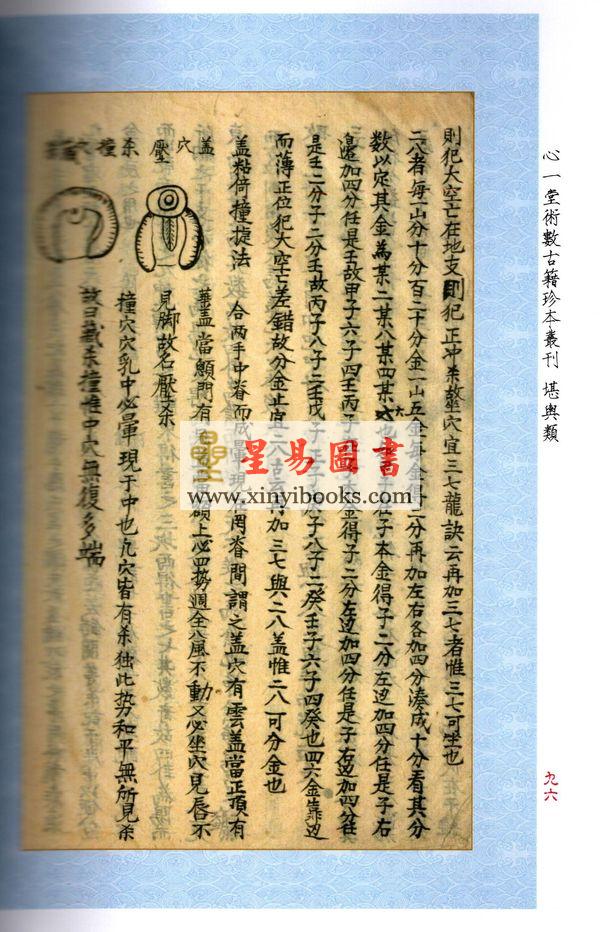 心一堂術數古籍珍本叢刊 堪輿類
九六
則犯大空亡在地支則犯正冲煞故坐穴宜三七龍訣云再加三七者惟三七可坐也
二八者每一山分十分百二十分金一山五金每金二分再加左右各加四分湊成十分看其分
數以定其金為某二某八某四某六也
子本金得子二分左边加四分任是子右
邊加四分任是壬故甲子六子四壬丙子
金得子二分左边加四分任是子右边加四分任
是壬二分子二分壬故丙子八子二壬戊子
子八子二癸壬子六子四癸也四六金靠边
而薄正位犯大空亡差錯故分金止宜二八
再加三七與二八盖惟二八可分金也
盖粘倚撞捷法
合兩手中脊而成暈現在两脊間謂之盖穴有雲盖當正頂有
華盖當顖門有
額上必四势週全八風不動又必坐穴見唇不
見脚故名壓煞
撞穴穴乳中必暈現于中也九穴皆有杀独此势和平無所見杀
故曰藏杀撞惟中穴無復多端
盖穴壓杀
撞穴
星易圖書
www.xinyibooks.com